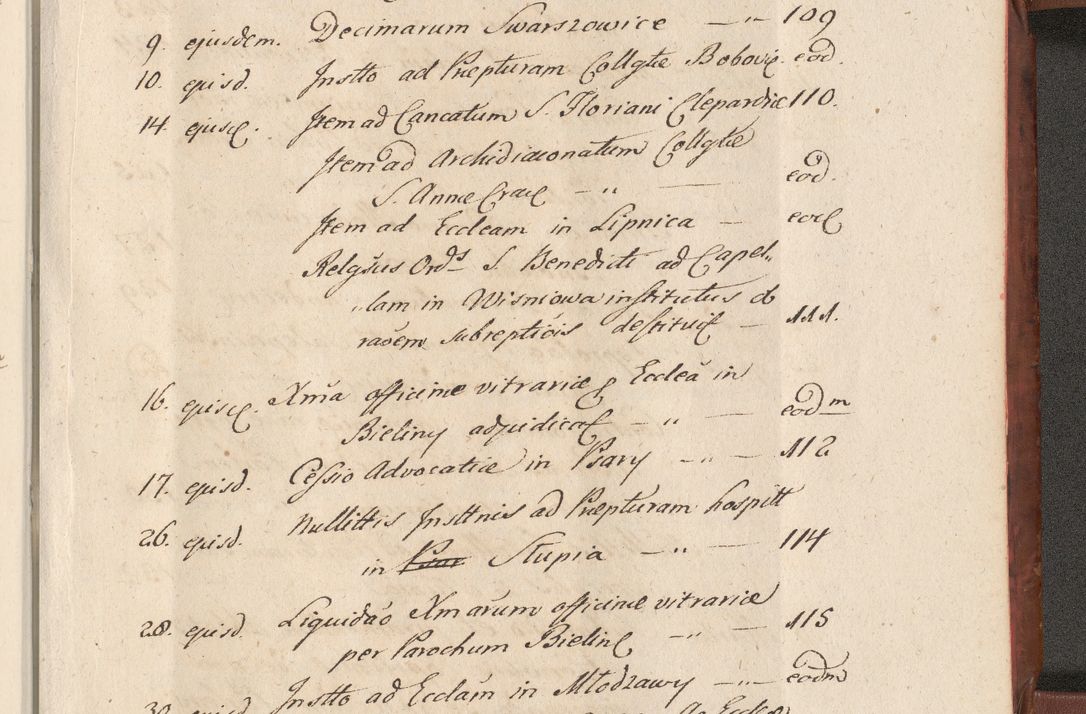 9. ejusdem. Decimarum Swarszowice — „ — 109
10. ejusd. Instto ad Prepturam Collgtæ Boboviȩ. eod.
14. ejusd. Item ad Cancatum S. Floriani Clepardiæ 110.
Item ad Archidiaconatum Collgtæ
S. Annæ Crac — „ — eod.
Item ad Eccleam in Lipnica — eod
Relgšus Ords S. Benedicti ad Capel„
„lam in Wisniowa institutus ob
raõem subreptiõis destituit — 111.
16. ejusd. Xma officinæ vitrariæ p Eccleã in
Bieliny adjudicat — „ — eodm
17. ejusd. Cessio Advocatiæ in Psary — „ — 112
26. ejusd. Nullittis Insttnis ad Prepturam hospitt
in Psar Slupia — „ — 114
28. ejusd. Liquidão Xmarum officinæ vitrariæ
per Parochum Bielin — „ — 115
Instto ad Ecclam in Młodzawy — „ — eodm
30. ejusd. Ao Eccles